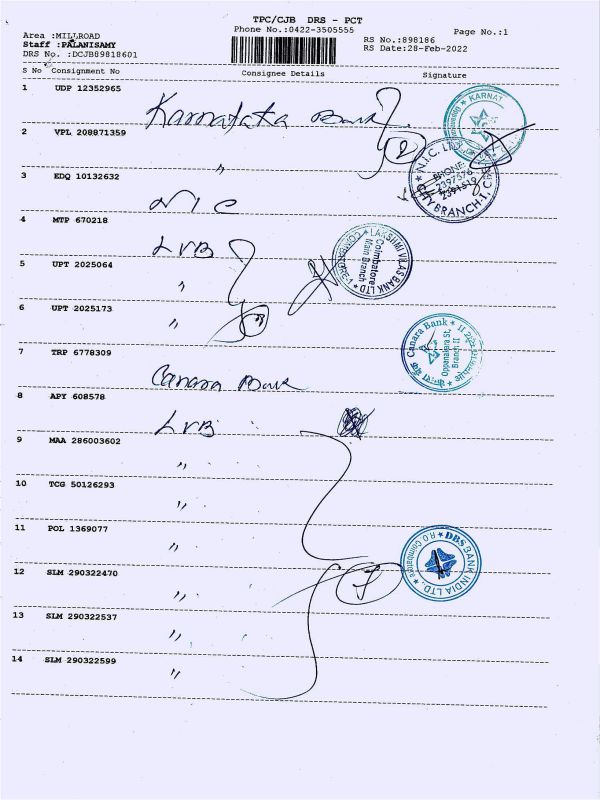 TPC/CJB DRS - PCT
Phone No:0422-3505555
Page No.:1
Area :MILLROAD
Staff :PALANISAMY
DRS No. :DCJB89818601
RS No.:898186
RS Date:28-Feb-2022
S No Consignment No Consignee Details Signature
1 UDP 12352965 Karnataka Bank
2 VPL 208871359 "
2
3 EDQ 10132632 NIC
4 MTP 670218 LVB
5 UPT 2025064 "
6 UPT 2025173 "
3
7 TRP 6778309 Canara Bank
8 APY 608578 LVB
9 MAA 286003602 "
10 TCG 50126293 "
11 POL 1369077 "
12 SLM 290322470 "
7
13 SLM 290322537 "
14 SLM 290322599 "
KARNAT
N.I.C.
PHONE
2397576
BRANCH-1
LAKSHMI VILAS BANK LTD
Coimbatore
Main Branch
Canara Bank
Oppanakara St.
Branch II
DBS BANK INDIA LTD.
R O Coimbatore